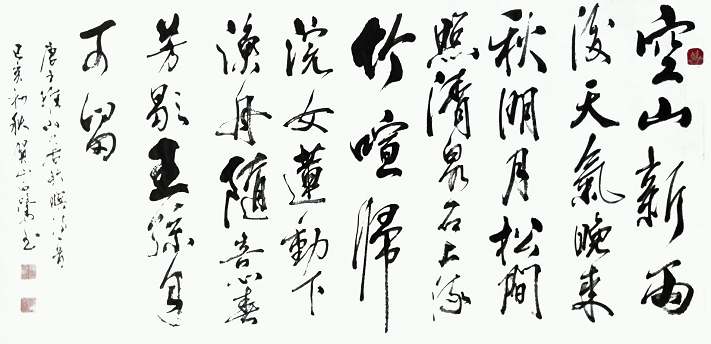 空山新雨
後天氣晚来
秋明月松間
照清泉石上流
竹喧歸
浣女蓮動下
漁舟随意春
芳歇王孫自
可留
唐王維山居秋暝詩一首
己亥初秋 書